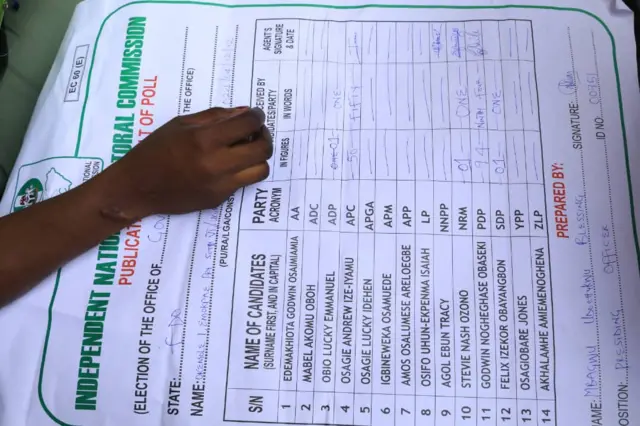 EC 60 (E)
INDEPENDENT NAT ORAL COMMISSION
PUBLICA T OF POLL
(ELECTION OF THE OFFICE OF
STATE: EDO THE OFFICE)
NAME:
(PU/RA/LGA/CONST
S/N NAME OF CANDIDATES (SURNAME FIRST, AND IN CAPITAL) PARTY ACRONYM IN FIGURES IN WORDS AGENT'S SIGNATURE & DATE
1 EDEMAKHIOTA GODWIN OSAUMIAMIA AA
2 MABEL AKOMU OBOH ADC
3 OBIO LUCKY EMMANUEL ADP 01 ONE
4 OSAGIE ANDREW IZE-IYAMU APC 50 FIFTY
5 OSAGIE LUCKY IDEHEN APGA
6 IGBINEWEKA OSAMUEDE APM
7 AMOS OSALUMESE ARELOEGBE APP
8 OSIFO UHUN-EKPENMA ISAIAH LP
9 AGOL EBUN TRACY NNPP
10 STEVIE NASH OZONO NRM 01 ONE
11 GODWIN NOGHEGHASE OBASEKI PDP 94
12 FELIX IZEKOR OBAYANGBON SDP 01 ONE
13 OSAGIOBARE JONES YPP
14 AKHALAMHE AMIEMENOGHENA ZLP
PREPARED BY:
NAME: BLESSING SIGNATURE:
POSITION: PRESIDING OFFICER ID NO.